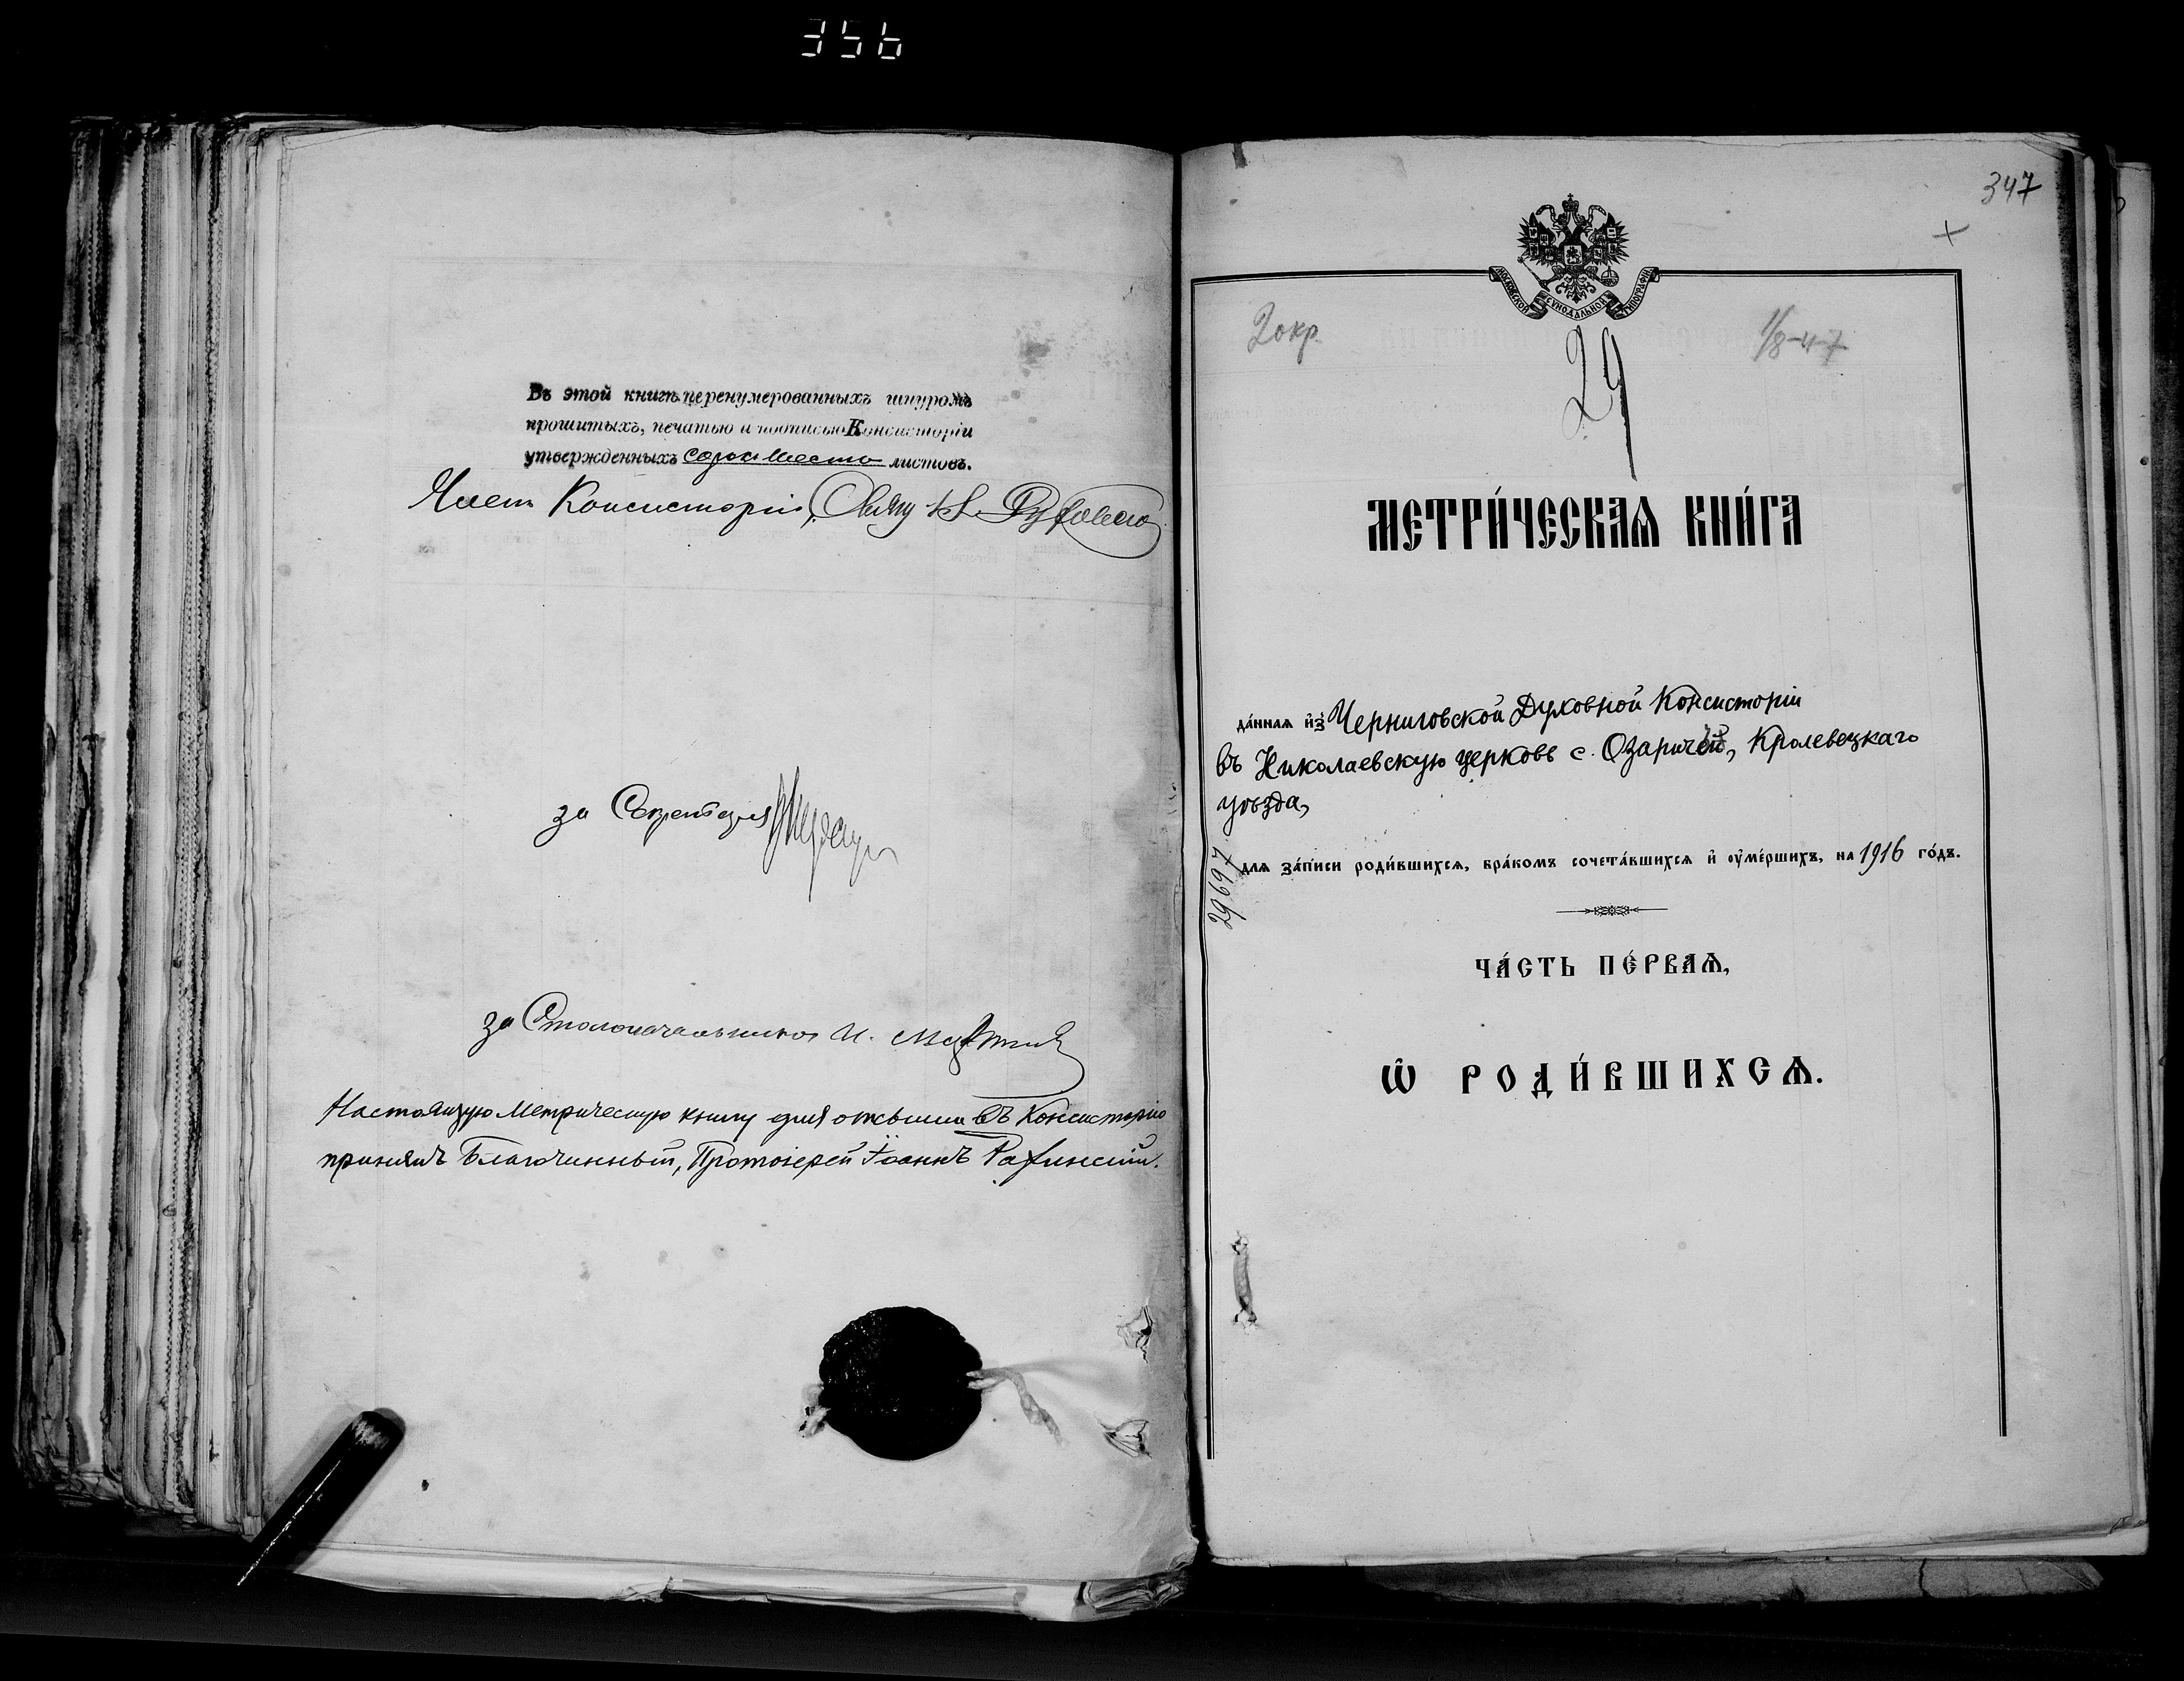 356
Въ этой книгѣ перенумерованныхъ шнуромъ
прошитыхъ, печатью и подписью Консисторіи
утвержденныхъ сорокъ шесть листовъ.
Членъ Консисторіи, Свящ.
за Секретаря
за Столоначальника И.
Настоящую метрическую книгу для отсылки въ Консисторію
принялъ Благочинный, Протоіерей Іоаннъ
347
+
МОСКОВСКОЙ СѴНОДАЛЬНОЙ ТИПОГРАФІИ
2 окр. 1/8-4-7
29
МЕТРИ́ЧЕСКАѦ КНИ́ГА
да́ннаѧ и҆з̾ Черниговской Духовной Консисторіи
въ Николаевскую церковь с. Озаричей, Кролевецкаго
уѣзда,
29697
длѧ за́писи роди́вшихсѧ, бра́комъ сочета́вшихсѧ и҆ оу҆ме́ршихъ, на 1916 го́дъ.
ЧА́СТЬ ПЕ́РВАѦ,
Ѡ҆ РОДИ́ВШИХСѦ.